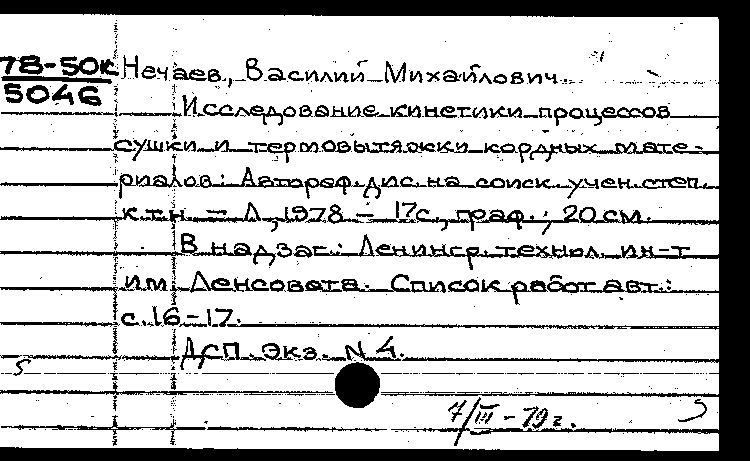 78-50к
5046
Нечаев, Василий Михайлович.
Исследование кинетики процессов
сушки и термовытяжки кордных мате-
риалов: Автореф. дис. на соиск. учен. степ.
к.т.н. – Л., 1978 – 17с., граф.; 20 см.
В надзаг.: Ленингр. технол. ин-т
им. Ленсовета. Список работ авт.:
с. 16-17.
ДСП. Экз. N 4.
7/III - 79 г.